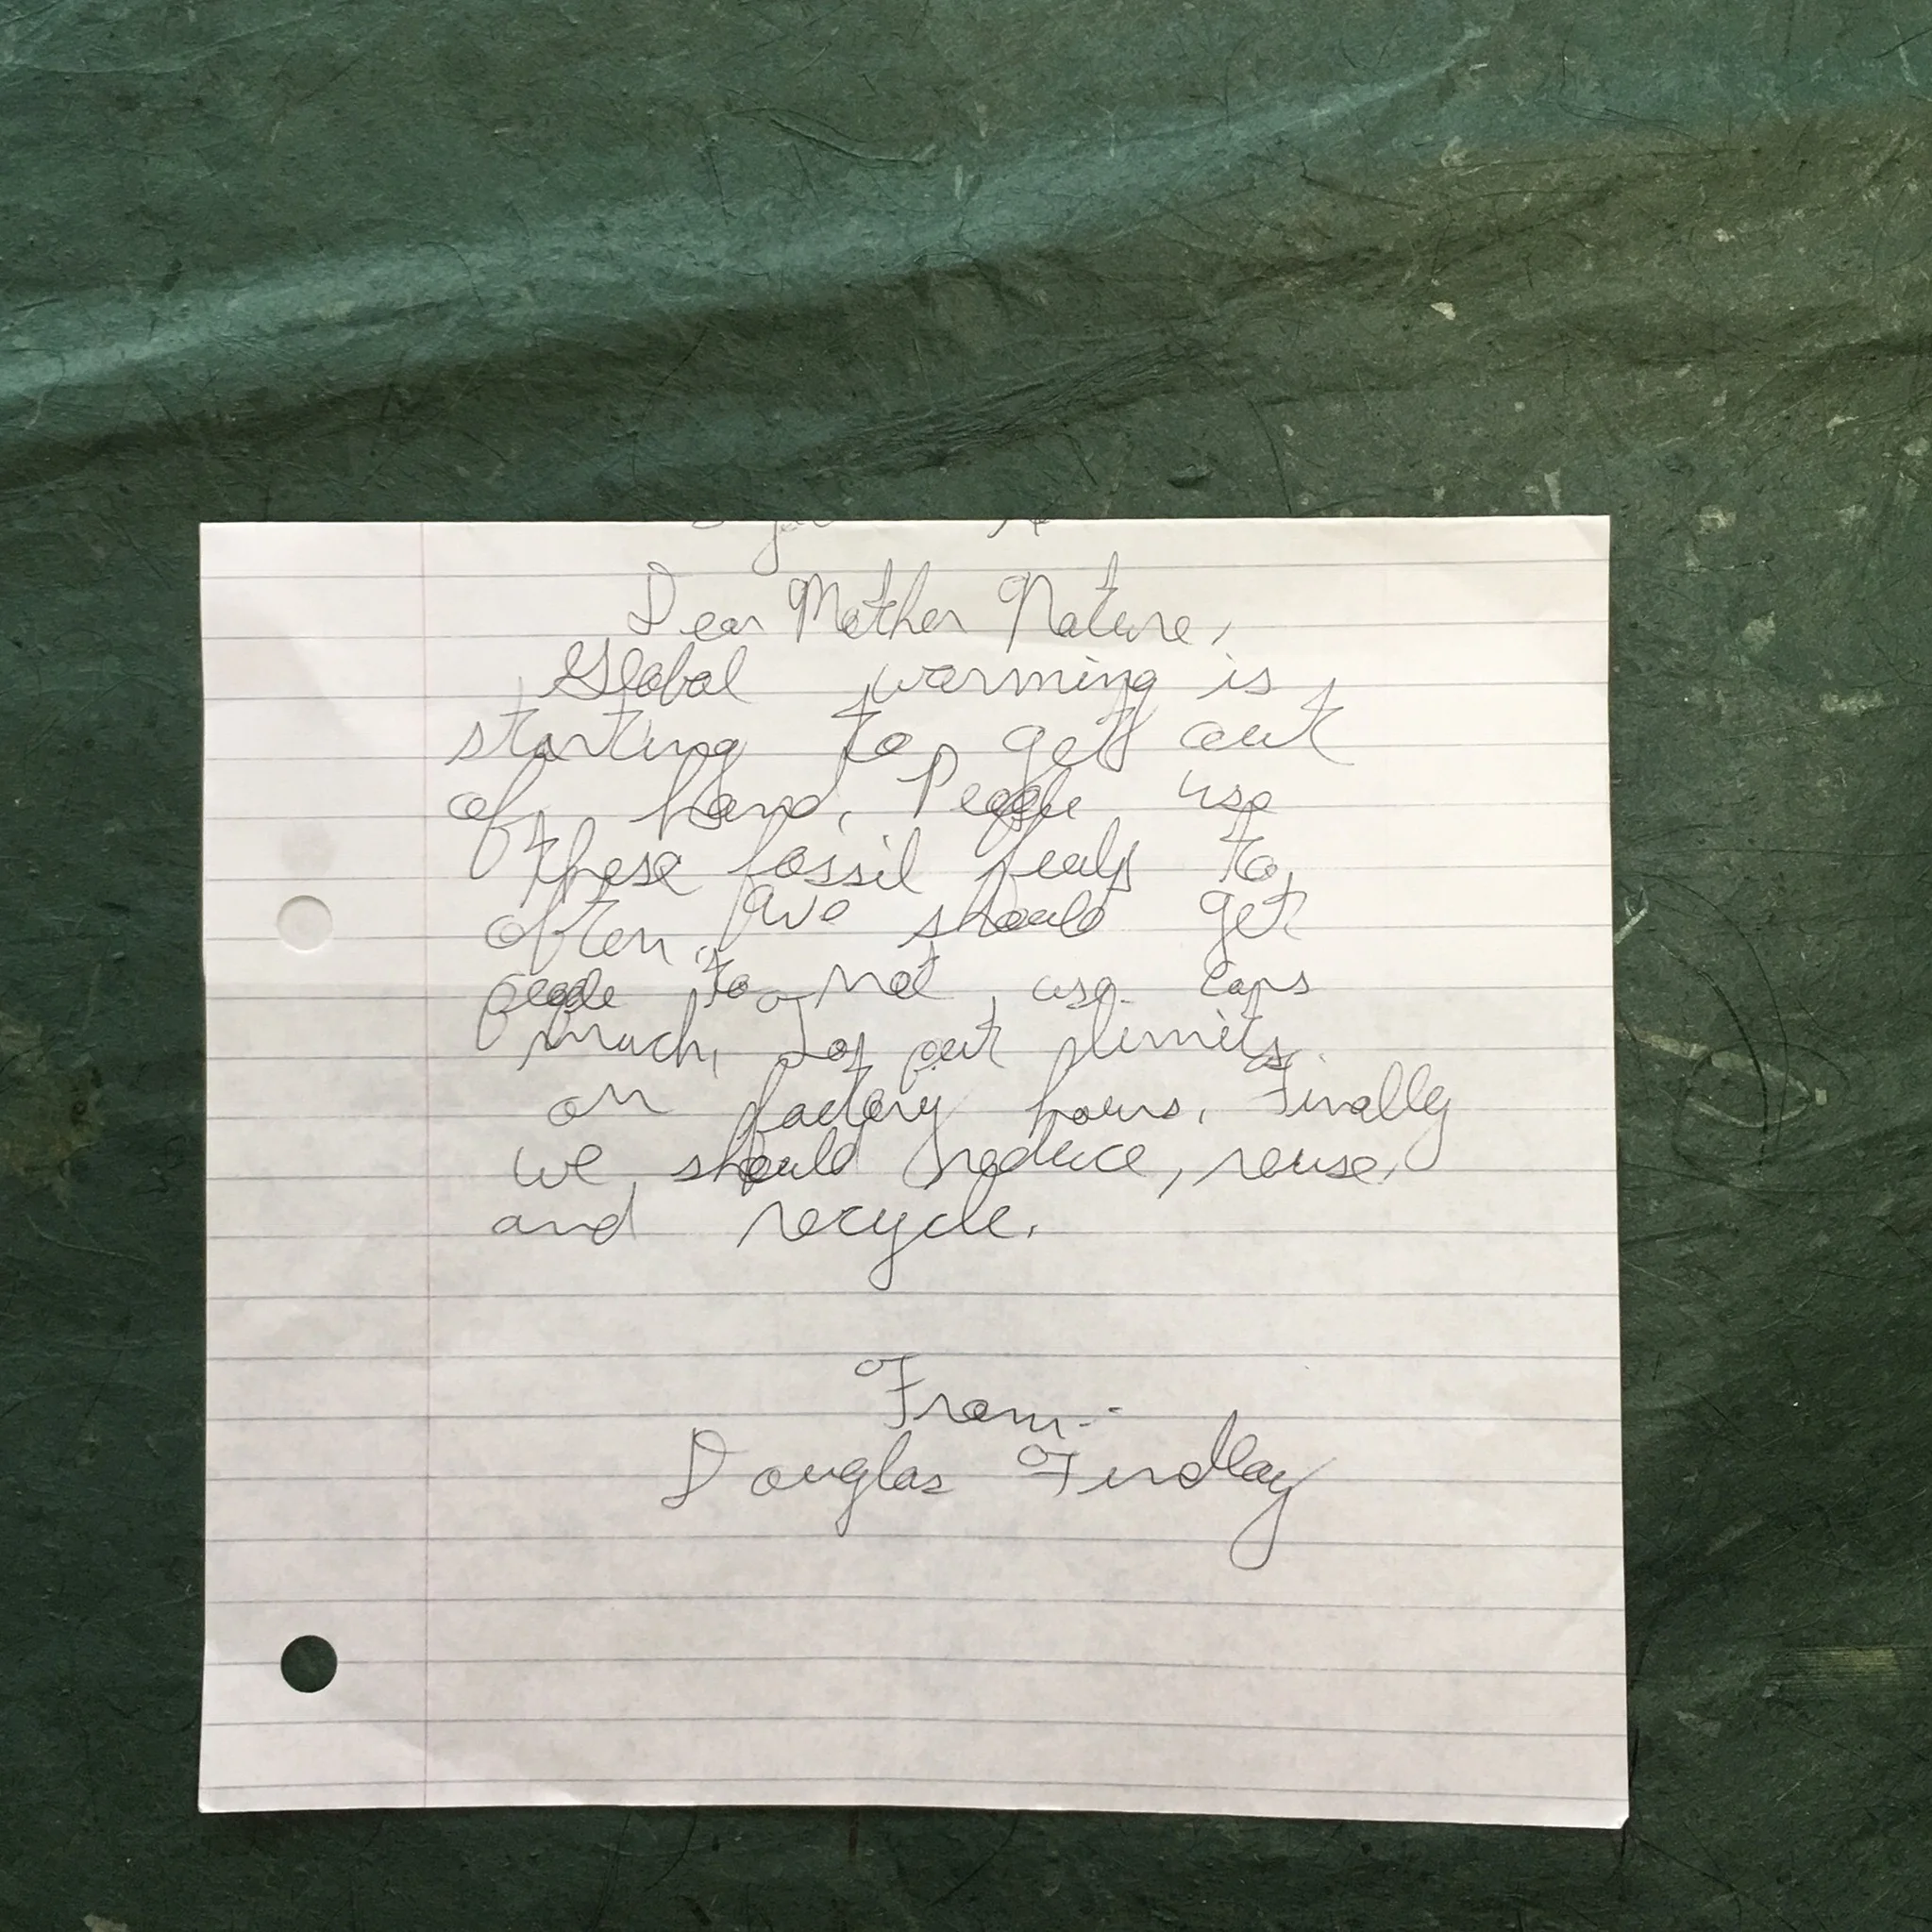 Dear Mother Nature,
Global warming is
starting to get out
of hand. People use
these fossil feuls to
often, we should get
people to not use cars
much, To put limits
on factory hours. Finally
we should reduce, reuse,
and recycle.
From:
Douglas Findlay